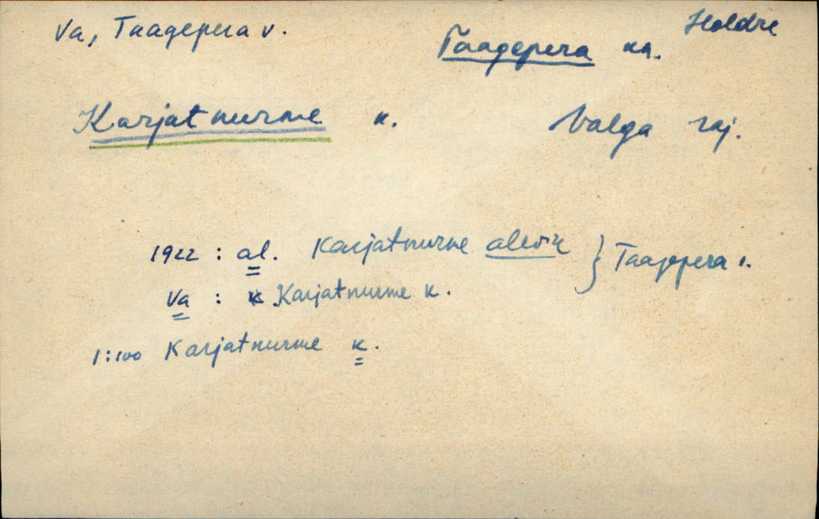 Va, Taagepera v.
Holdre
Taagepera kn.
Karjatnurme k.
Valga raj.
1922 : al. Karjatnurme alevik } Taagepera v.
Va : k Karjatnurme k.
1:100 Karjatnurme k.